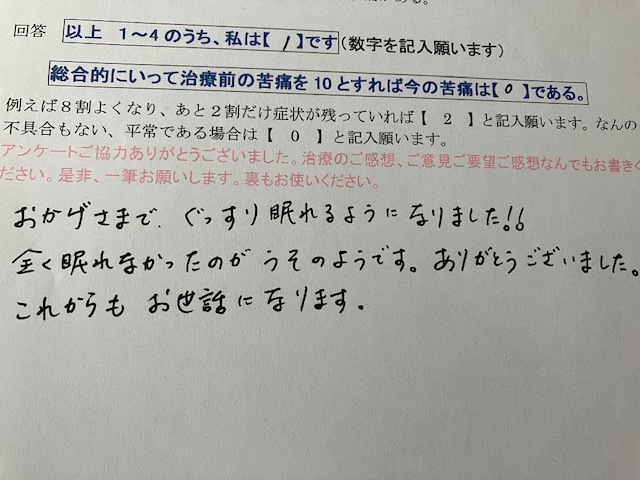 回答 以上 1～4のうち、私は【 1 】です(数字を記入願います)
総合的にいって治療前の苦痛を10とすれば今の苦痛は【 0 】である。
例えば8割よくなり、あと2割だけ症状が残っていれば【 2 】と記入願います。なんの
不具合もない、平常である場合は【 0 】と記入願います。
アンケートご協力ありがとうございました。治療のご感想、ご意見ご要望ご感想なんでもお書きく
ださい。是非、一筆お願いします。裏もお使いください。
おかげさまで、ぐっすり眠れるようになりました!!
全く眠れなかったのがうそのようです。ありがとうございました。
これからもお世話になります。